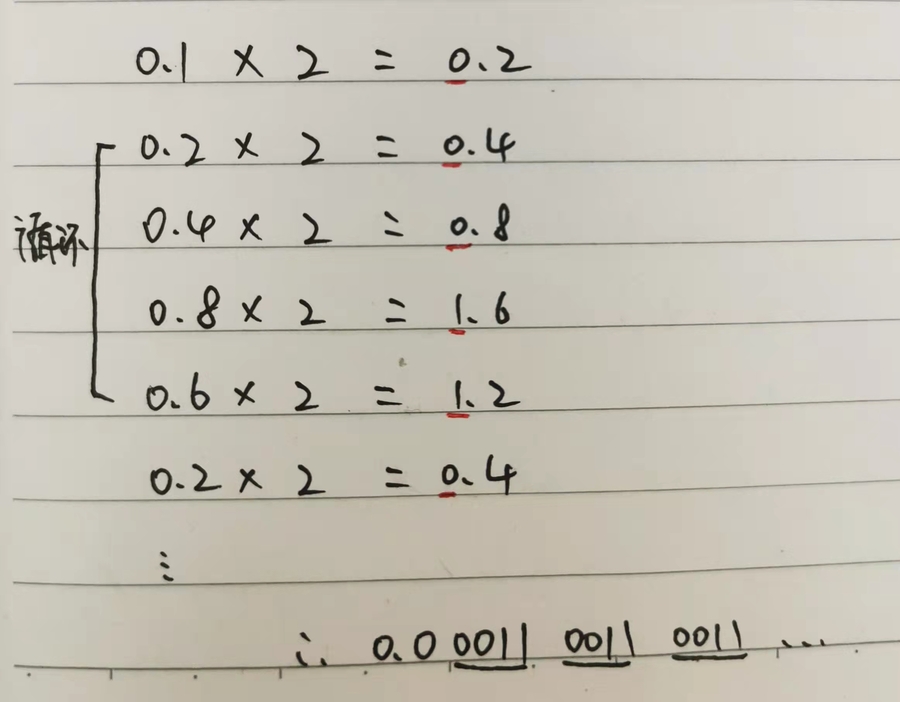 0.1 × 2 = 0.2
0.2 × 2 = 0.4
循环
0.4 × 2 = 0.8
0.8 × 2 = 1.6
0.6 × 2 = 1.2
0.2 × 2 = 0.4
⋮
∴ 0.0 0011 0011 0011 ...